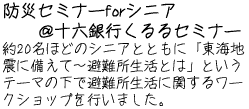 防災セミナーforシニア
@十六銀行くるるセミナー
約20名ほどのシニアとともに「東海地
震に備えて～避難所生活とは」という
テーマの下で避難所生活に関するワー
クショップを行いました。